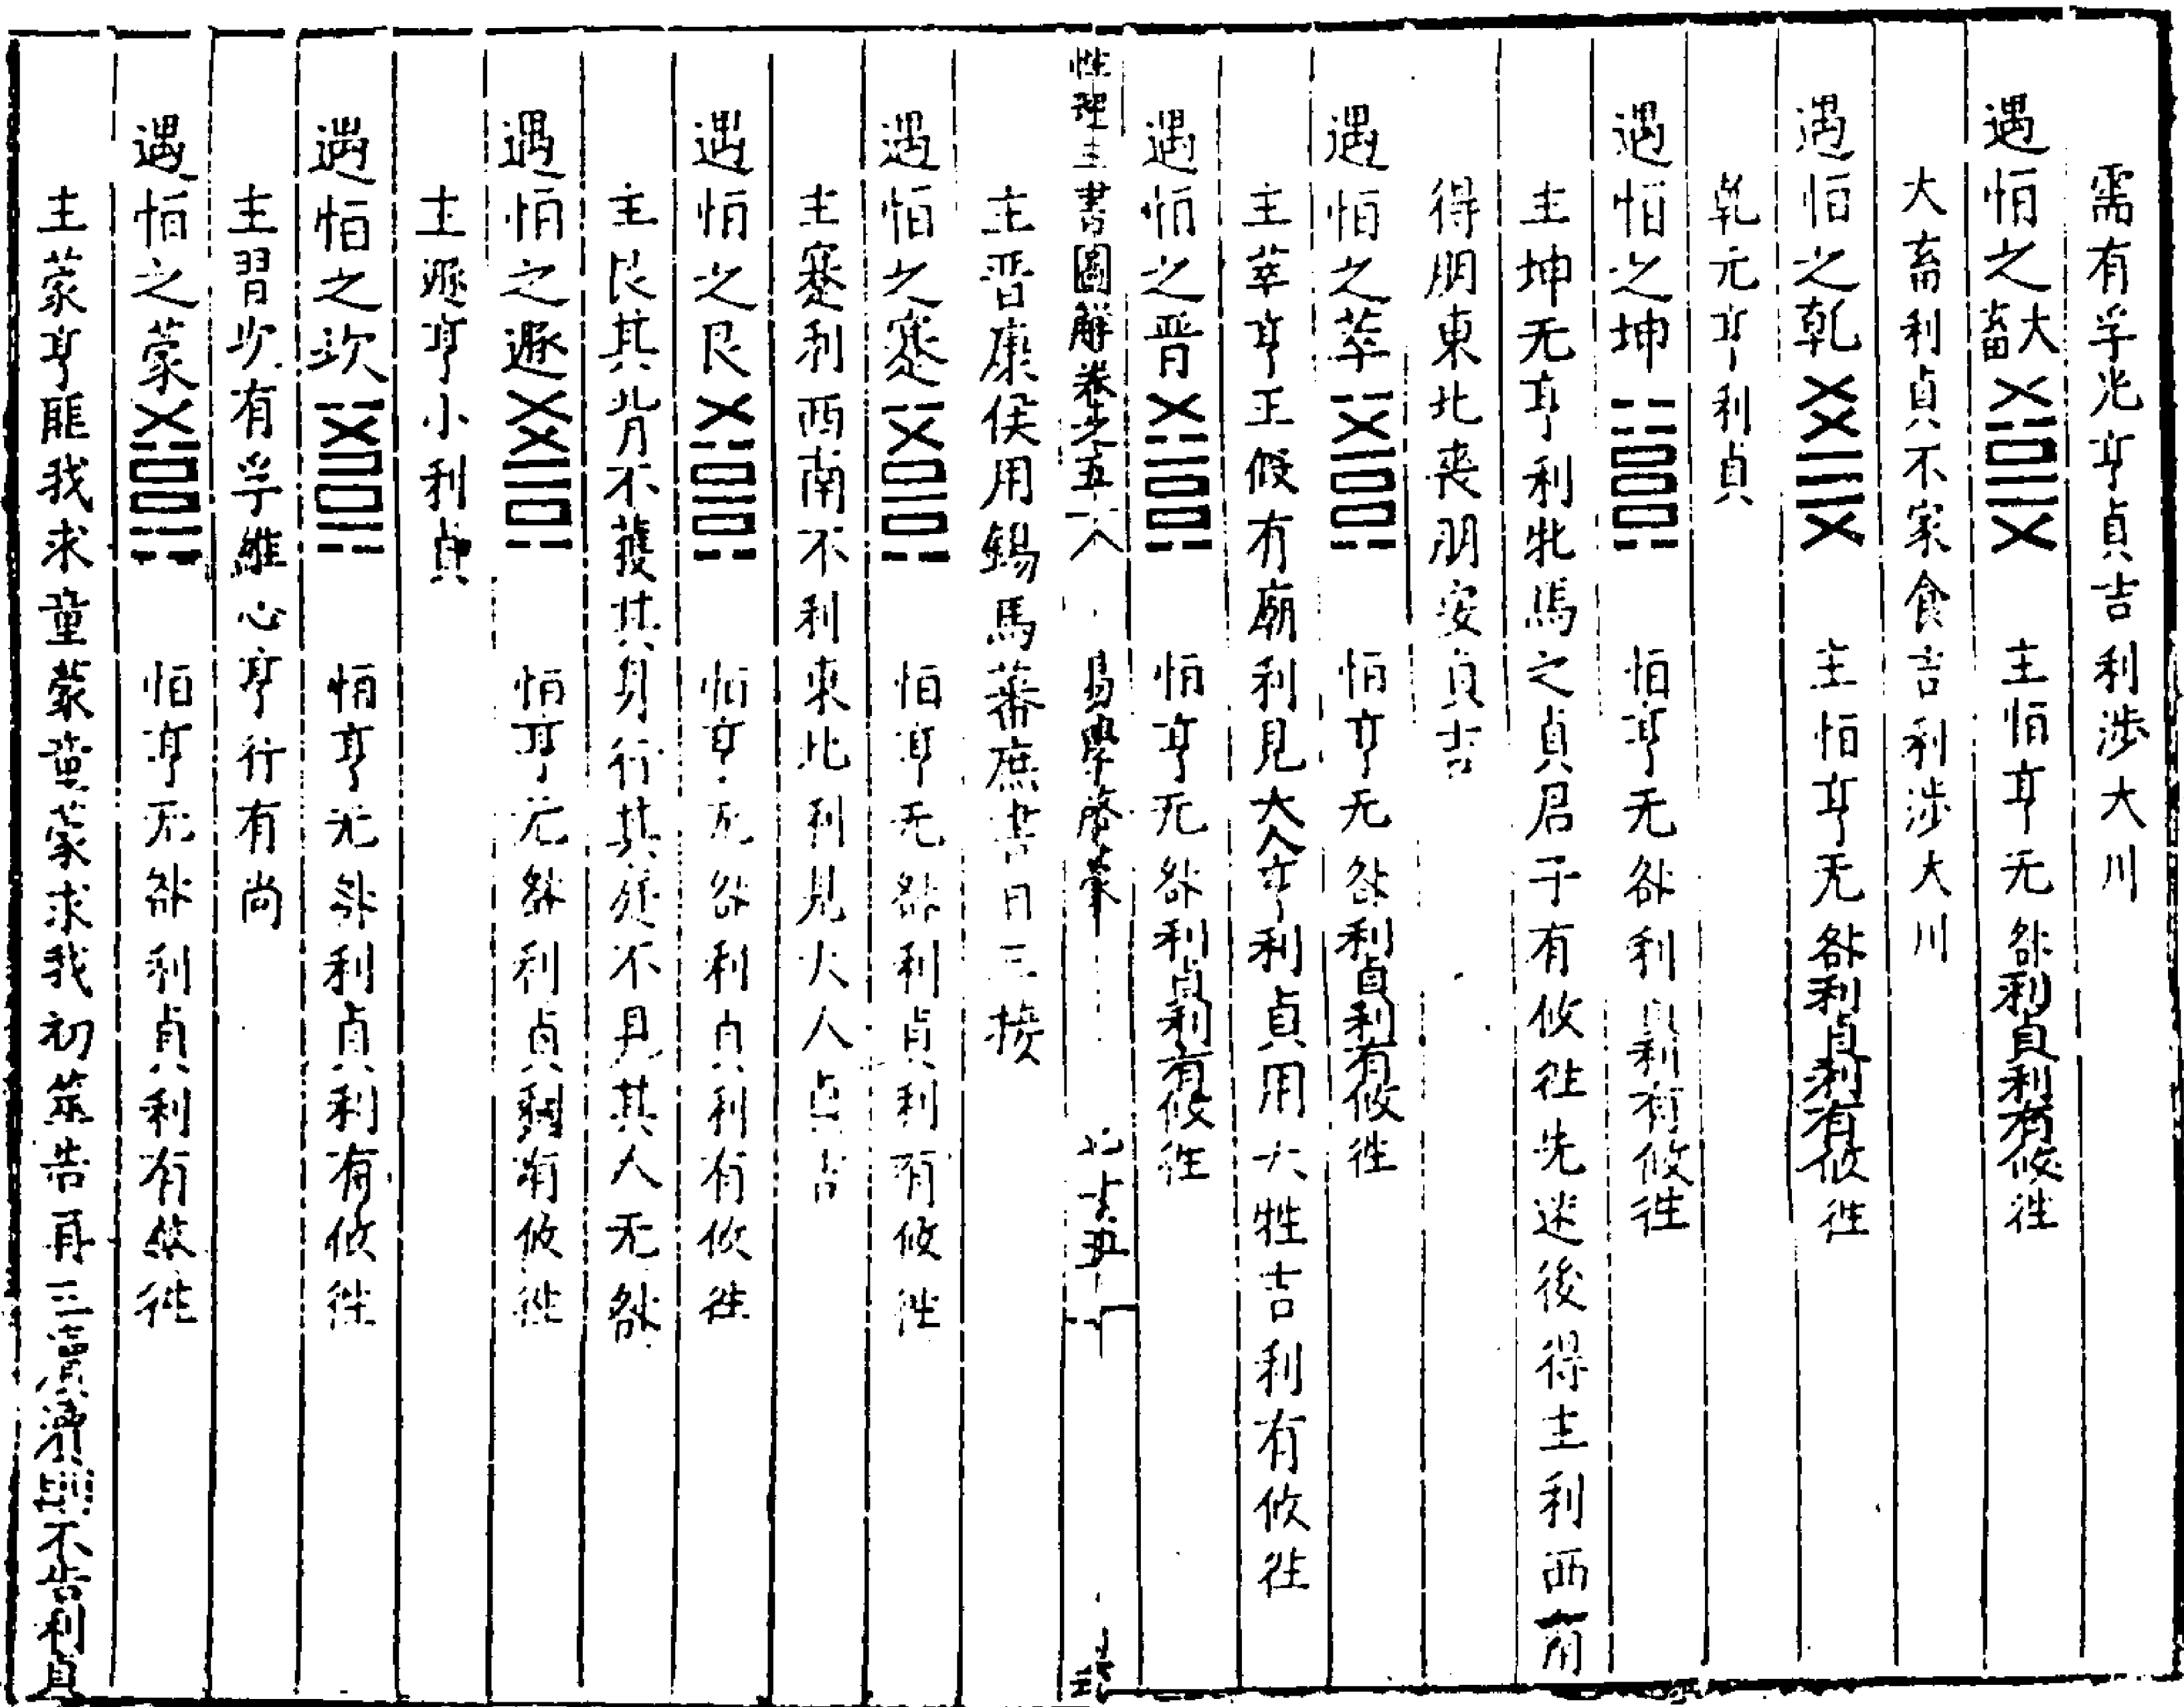 需有孚光亨貞吉利涉大川
遇恒之大畜 主恒亨无咎利貞利有攸往
大畜利貞不家食吉利涉大川
遇恒之乾 主恒亨无咎利貞利有攸往
乾元亨利貞
遇恒之坤 恒亨无咎利貞利有攸往
主坤元亨利牝馬之貞君子有攸往先迷後得主利西南
得朋東北喪朋安貞吉
遇恒之萃 恒亨无咎利貞利有攸往
主萃亨王假有廟利見大人亨利貞用大牲吉利有攸往
遇恒之晋 恒亨无咎利貞利有攸往
性理 書圖解卷之五 易學啓蒙
主晋康侯用錫馬蕃庶晝日三接
遇恒之蹇 恒亨无咎利貞利有攸往
主蹇利西南不利東北利見大人貞吉
遇恒之艮 恒亨无咎利貞利有攸往
主艮其背不獲其身行其庭不見其人无咎
遇恒之遯 恒亨无咎利貞利有攸往
主遯亨小利貞
遇恒之坎 恒亨无咎利貞利有攸往
主習坎有孚維心亨行有尚
遇恒之蒙 恒亨无咎利貞利有攸往
主蒙亨匪我求童蒙童蒙求我初筮告再三瀆瀆則不告利貞